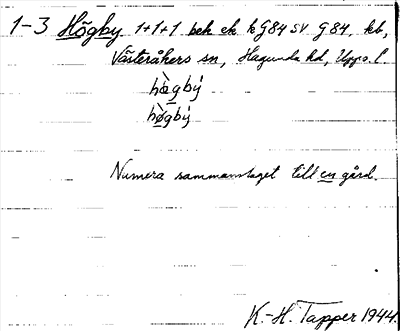 1-3 Högby 1+1+1 bek ek. k G84 SV G84, kb,
Västeråkers sn, Hagunda hd, Upps. l.
hö̀gbý
hø̀gbý
Numera sammanslaget till en gård.
K.-H. Tapper 1944.